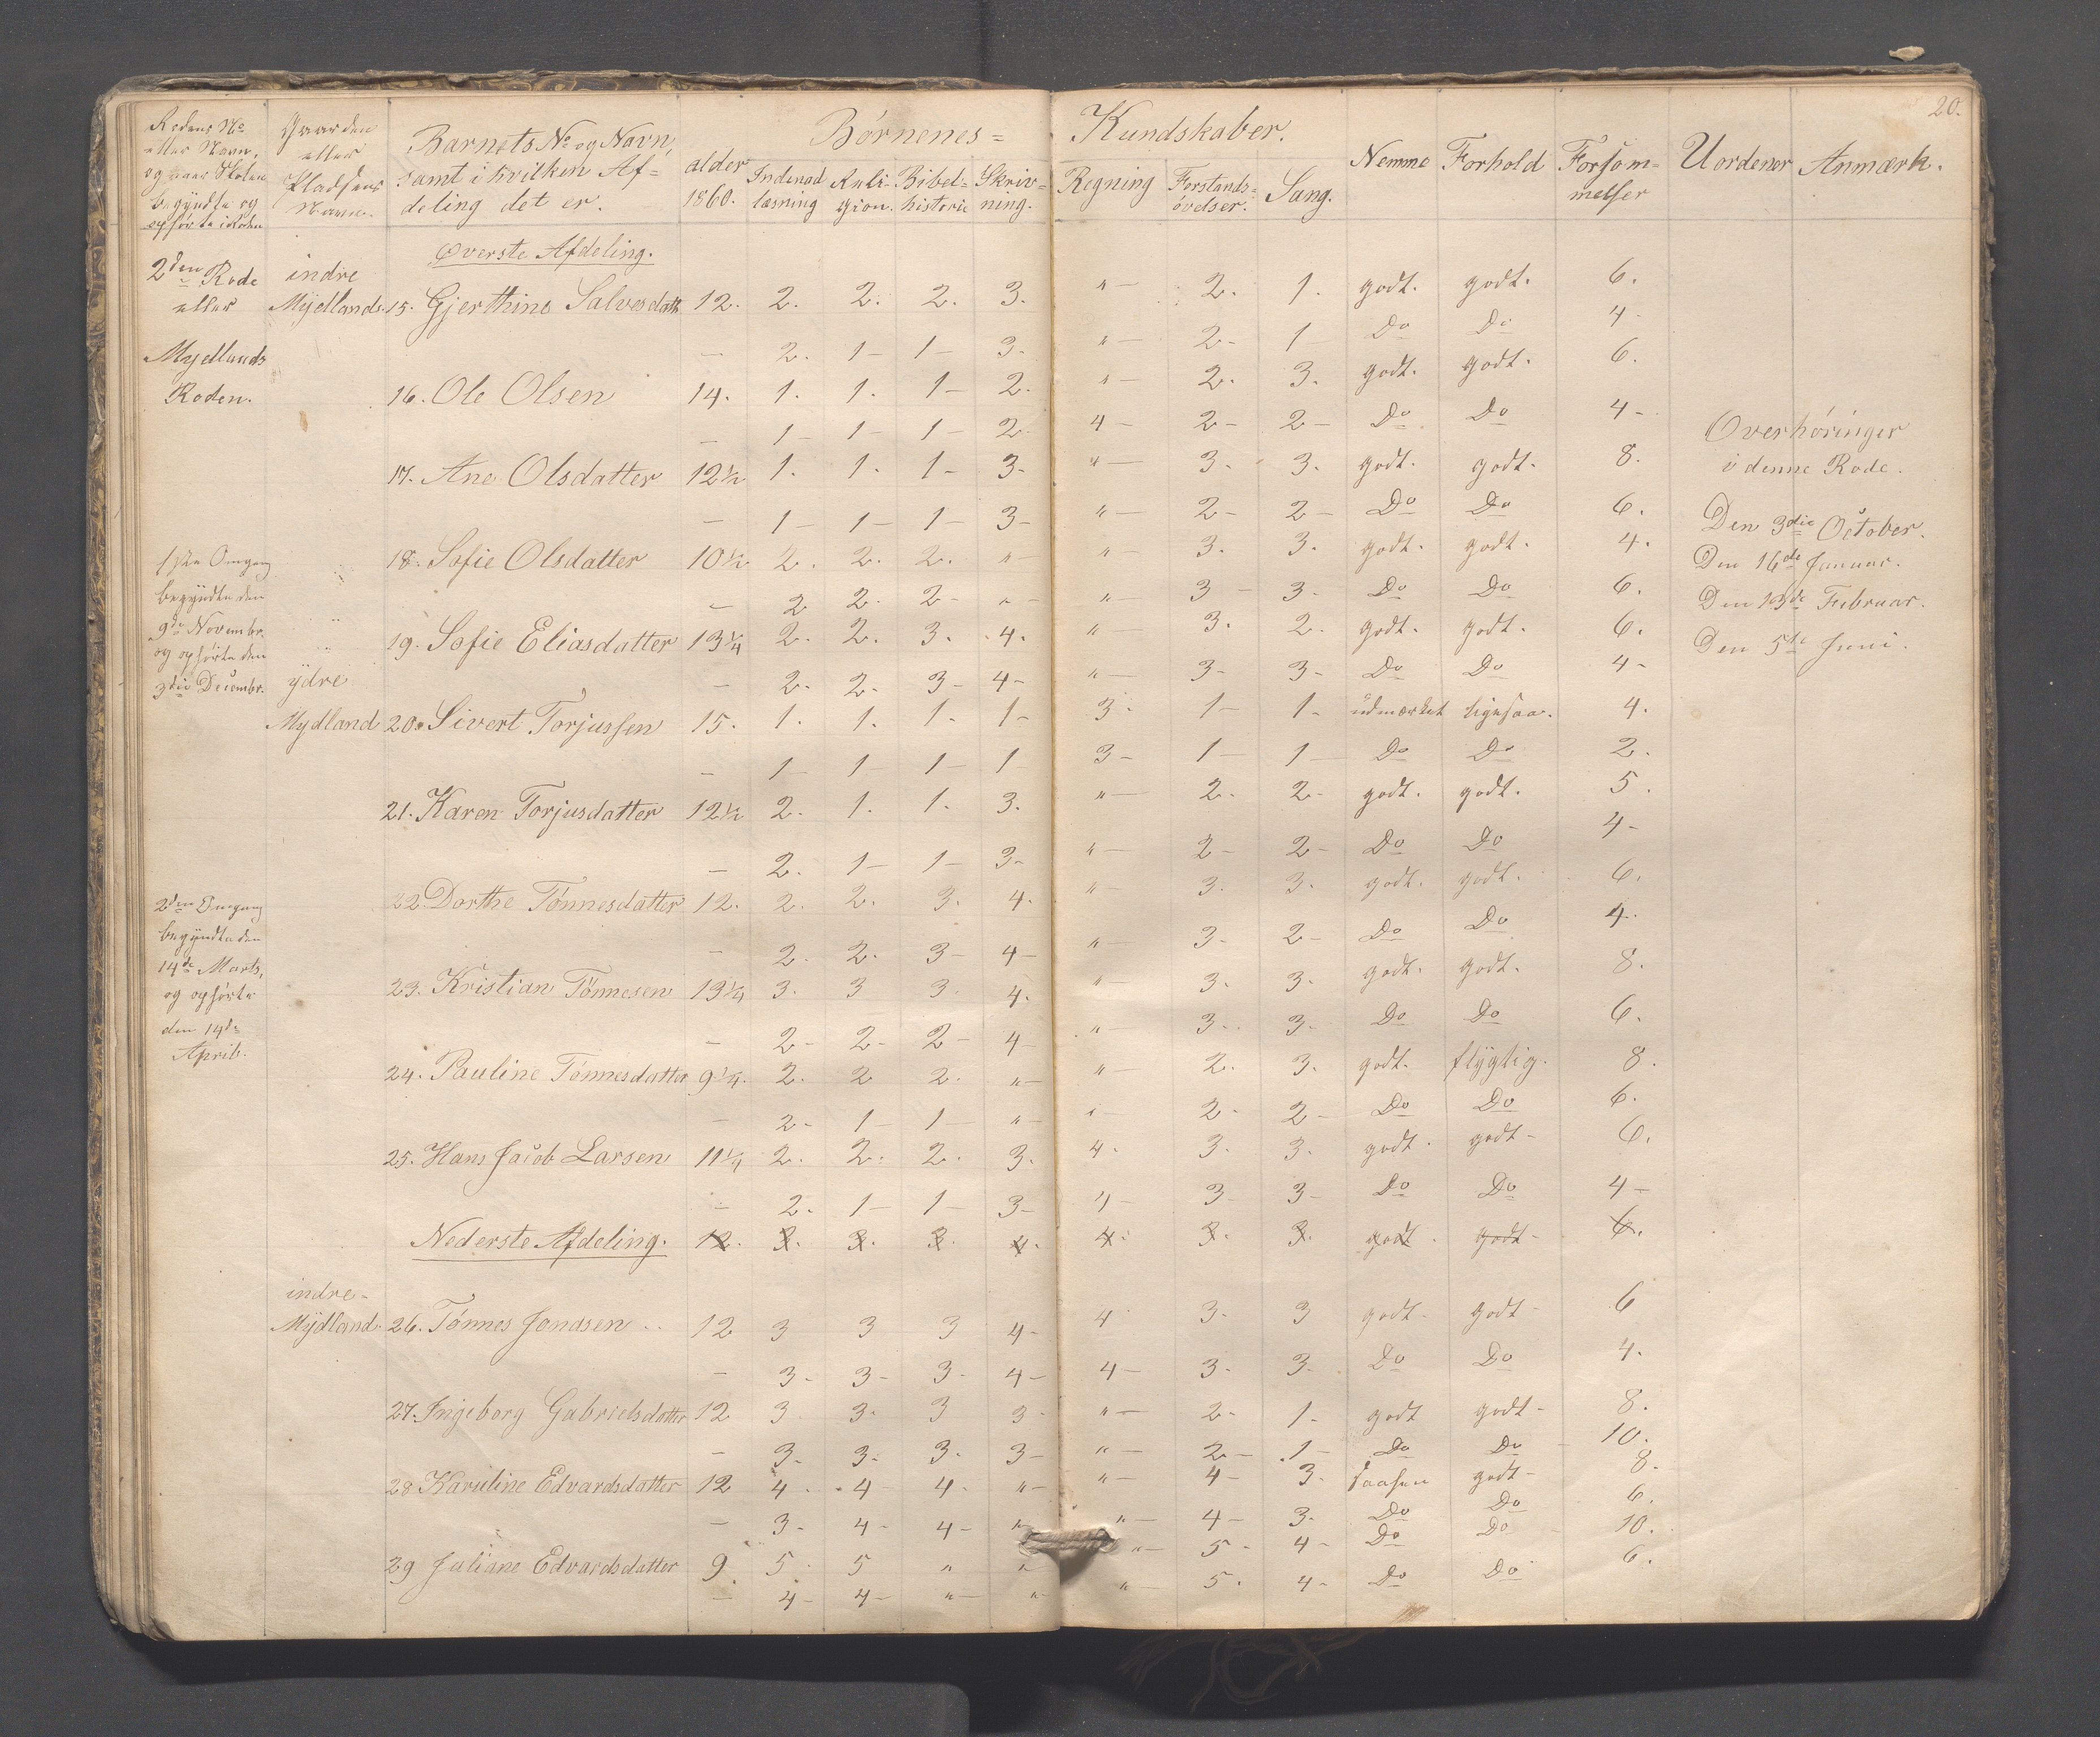 20.
Rodens No eller Navn, og naar Skolen begyndte og ophørte i Roden
Gaarden eller Pladsens Navn.
Barnets No og Navn, samt i hvilken Afdeling det er.
alder 1860.
Børnenes= Kundskaber.
Indenad læsning
Religion.
Bibelhistorie
Skrivning.
Regning
Forstandsøvelser.
Sang.
Nemme
Forhold
Forsømmelser
Uordener
Anmærk.
Øverste Afdeling.
2den Rode eller Mydlands Roden.
indre Mydland. 15. Gjerthine Salvesdatt. 12. 2. 2. 2. 3. " 2. 1. godt. godt. 6.
— 2. 1 1 3. " 2 1 Do Do 4
16. Ole Olsen 14. 1. 1. 1 2. " 2. 3. godt. godt. 6.
— 1 1 1 2 4 2 2 Do Do 4
17. Ane Olsdatter 12½ 1. 1. 1 3. " 3. 3. godt. godt. 8.
— 1 1 1 3 " 2 2 Do Do 6.
18. Sofie Olsdatter 10½ 2. 2. 2. " " 3. 3. godt. godt. 4.
— 2 2 2 " " 3 3 Do Do 6.
19. Sofie Eliasdatter 13¼ 2. 2. 3. 4. " 3. 2. godt. godt. 6.
— 2. 2. 3 4 " 3 3 Do Do 4
ydre Mydland 20. Sivert Torjussen 15. 1. 1. 1. 1 3. 1 1. udmærket ligesaa. 4.
— 1 1 1 1 3 1 1 Do Do 2.
21. Karen Torjusdatter 12½ 2. 1. 1. 3. " 2. 2 godt. godt. 5.
— 2. 1 1 3 " 2 2 Do Do 4
22. Dorthe Tönnesdatter 12. 2. 2. 3. 4. " 3. 3. godt. godt. 6.
— 2. 2. 3 4 " 3. 2 Do Do 4.
23. Kristian Tönnesen 13¼ 3. 3 3. 4. " 3. 3. godt. godt. 8.
— 2 2 2 4 " 3. 3 Do Do 6.
24. Pauline Tönnesdatter 9¼. 2. 2 2. " " 2. 3. godt. flygtig. 8.
— 2 1 1 " " 2 2 Do Do 6.
25. Hans Jacob Larsen 11¼ 2. 2. 2. 3. 4. 3. 3. godt. godt 6.
— 2. 1 1 3 4 3 3 Do Do 4
Nederste Afdeling. 12. 3. 3. 3. 4. 4. 3. 3. godt. godt 6.
indre Mydland. 26. Tönnes Jonasen 12 3 3 3 4 4 3. 3 godt godt 6
— 3 3 3 4 4 3. 3. Do Do 4.
27. Ingeborg Gabrielsdatter 12 3 3. 3 3 " 2. 1. godt godt 8.
— 3. 3. 3. 3 " 2 1 Do Do 10.
28 Karoline Edvardsdatter 12 4. 4 4. " " 4 3. saasen godt 8.
— 3. 4 4 " " 4 3. Do Do 6.
29 Juliane Edvardsdatter 9 5 5 " " " 5 4 Do Do 10.
— 4 4 " " " 5. 4 Do Do 6.
1ste Omgang
begyndte den
9de Novembr.
og ophörte den
3die Decembr.
2den Omgang
begyndte den
14de Marts,
og ophörte
den 14de
April.
Overhøringer
i denne Rode.
Den 3die October.
Den 16de Januar.
Den 13de Februar.
Den 5te Juni.